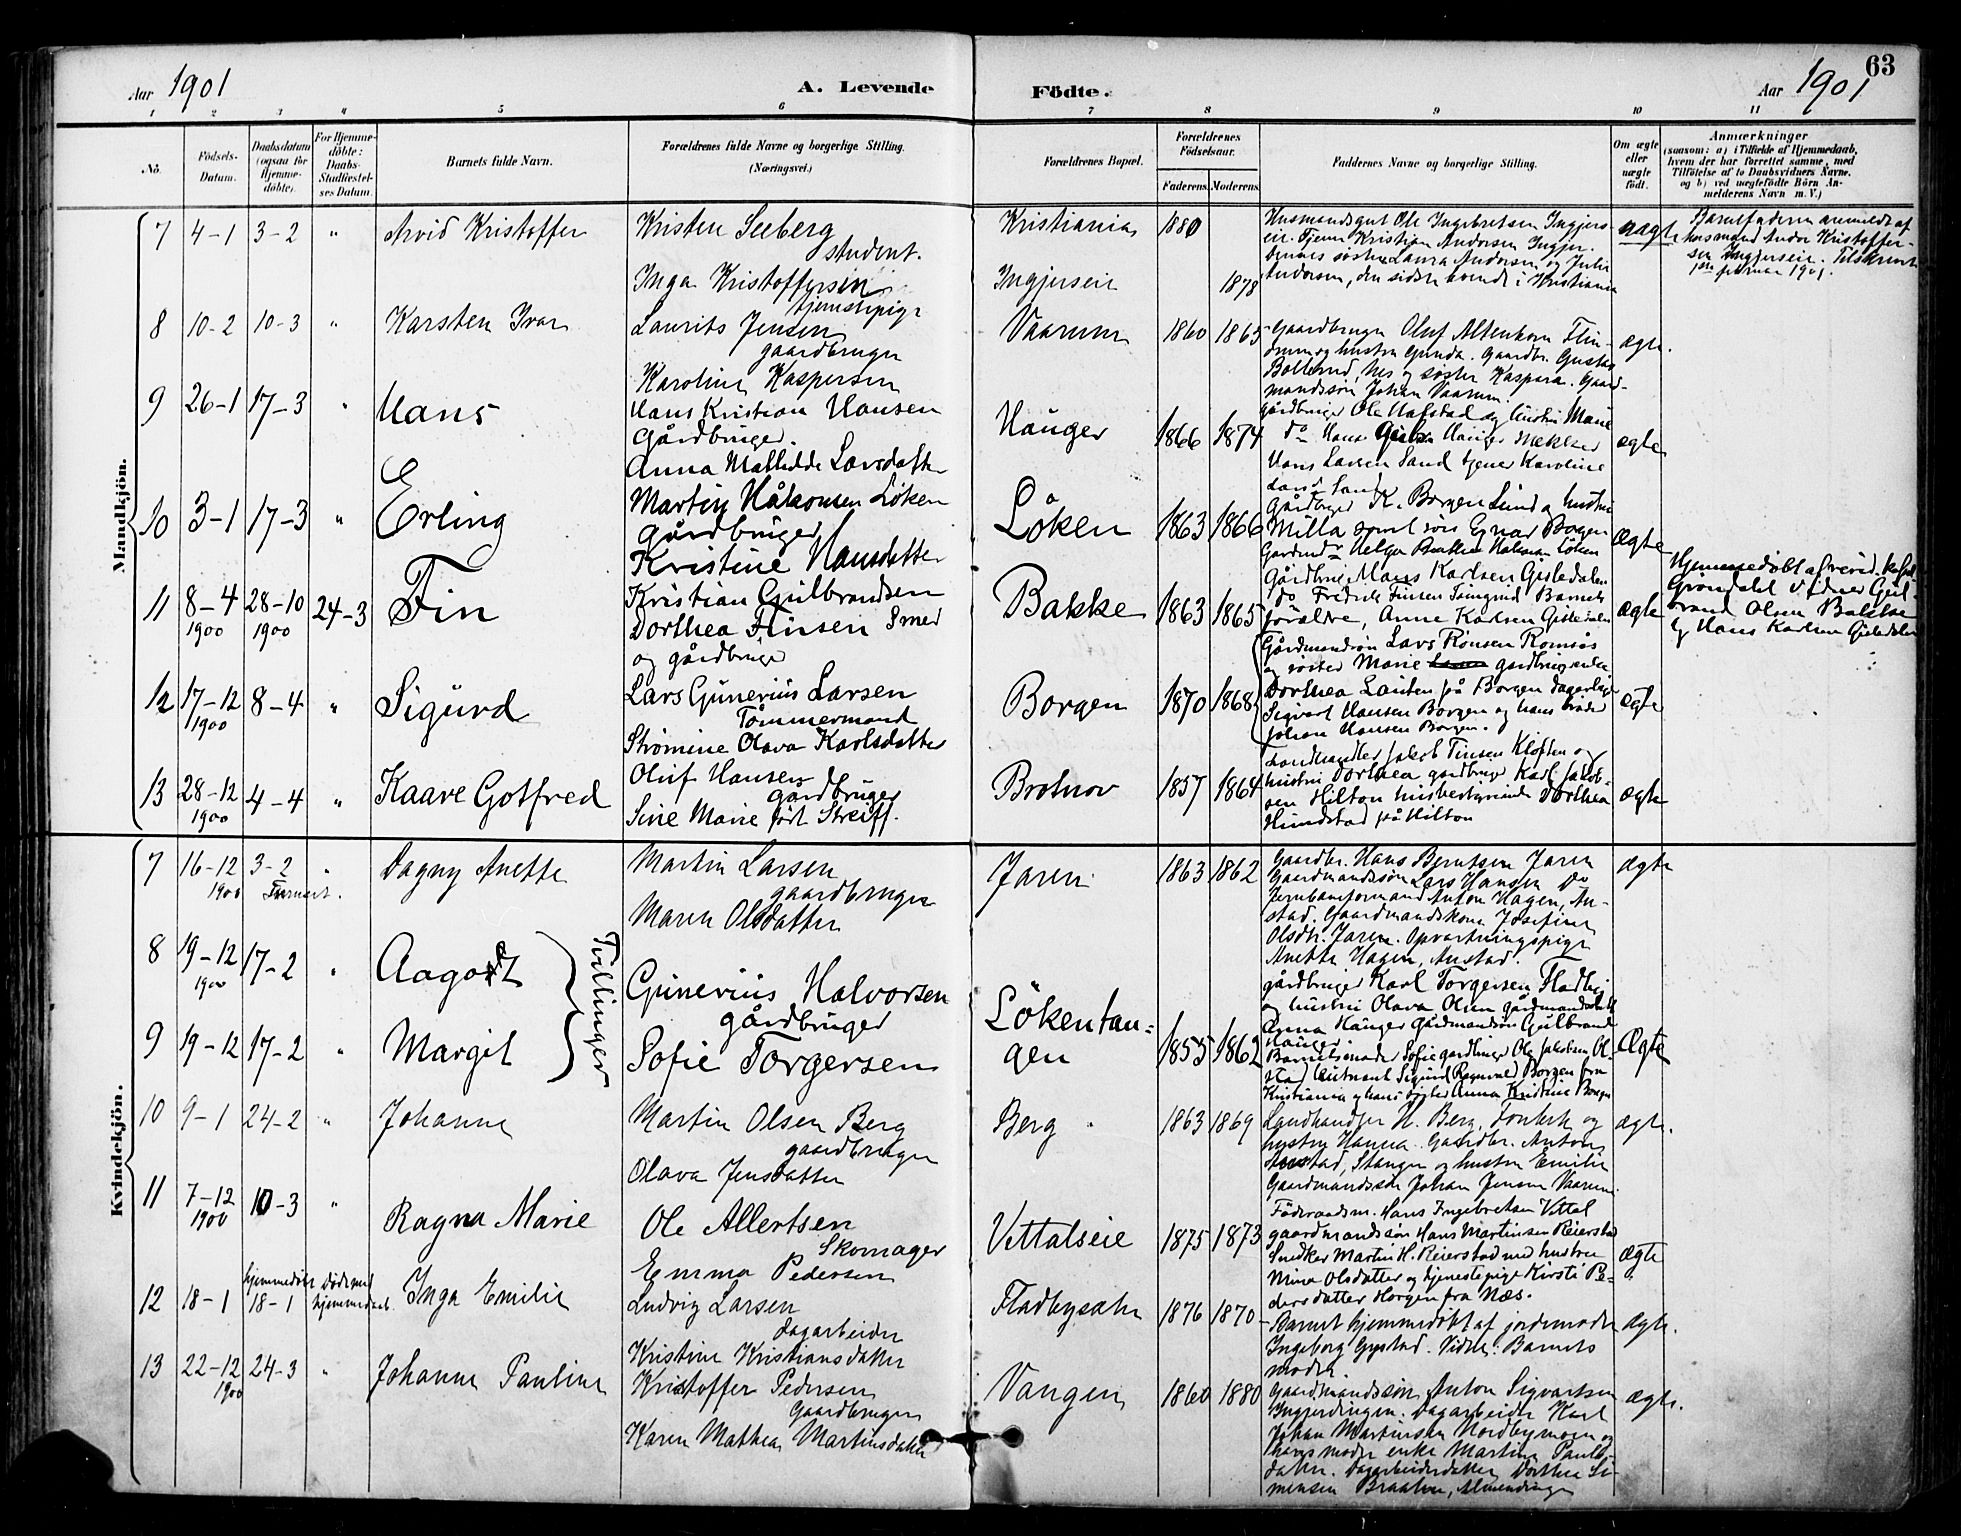 63
Aar 1901
A. Levende
Födte.
Aar 1901
1 2 3 4 5 6 7 8 9 10 11
No.
Födsels-Datum.
Daabsdatum (ogsaa for Hjemme-döbte).
For Hjemme-döbte: Daabs-Stadfæstel-ses Datum.
Barnets fulde Navn.
Forældrenes fulde Navne og borgerlige Stilling.
(Næringsvei.)
Forældrenes Bopæl.
Forældrenes Födselsaar.
Faderens. Moderens.
Faddernes Navne og borgerlige Stilling.
Om ægte eller uægte födt.
Anmærkninger
(saasom: a) i Tilfælde af Hjemmedaab,
hvem der har forrettet samme, med
Tilföielse af to Daabsvidners Navne,
og b) ved uægtefödte Börn An-
melderens Navn m. V.)
Mandkjön.
7 4-1 3-2 " Arvid Kristoffer
Kristen Seeberg
student.
Inga Kristoffersen
tjenestepige
Kristiania 1880
Ingjerseie 1878
Husmandsgut Ole Ingebretsen Ingjers-
eie. Tjener Kristian Andersen Ingjer.
dennes søster Laura Andersen og Julie
Andersen, den sidste boende i Kristiania
uægte
Barnefaderen anmeldt af
husmand Andor Kristoffer-
sen Ingjerseie.
februar 1901.
8 10-2 10-3 " Karsten Ivar
Laurits Jensen
gaardbruger
Karoline Kaspersen
Vaarum 1860 1865
Gaardbruger Oluf Altenborn
og hustru Gunda. Gaardbr. Gustav
og søster Kaspara. Gaard-
mandssøn Johan Vaarum.
ægte.
9 26-1 17-3 " Hans
Hans Kristian Hansen
Gårdbruger.
Anna Mathilde Larsdatter
Hauger 1866 1874
gårdbruger Ole Hafstad og hustru Marie
do Hans Hauger
Hans Larsen Sand tjener Karoline
Sand
ægte
10 3-1 17-3 " Erling
Martin Håkonsen Løken
Gårdbruger
Kristine Hansdatter
Løken 1863 1866
gårdbruger K. Borgen Lund og hustru
Milla samt søn Egnar Borgen
Helga Løken
ægte
11 8-4 1900 28-10 1900 24-3 Fin
Kristian Gulbrandsen
Dorthea Finsen Smed
og gårdbruger
Bakke 1863 1865
Gårdbruger Hans Karlsen Gisledalen
do Fredrik Finsen Barnets
forældre, Anne Karlsen Gisledalen
ægte
Hjemmedøbt af
Grøndahl Vidner Gul-
brand Olsen Bakke
og Hans Karlsen Gisledalen
12 17-12 1900 8-4 " Sigurd
Lars Gunerius Larsen
Tømmermand
Strømine Olava Karlsdatter
Borgen 1870 1868
Gårdmandssøn Lars Romsås
og søster Marie gårdbrugerenke
Dorthea på Borgen
Sigvart Hansen Borgen og hans broder
Johan Hansen Borgen.
ægte
13 28-12 1900 4-4 " Kaare Gotfred
Oluf Hansen
gårdbruger
Sine Marie født Streiff.
Brotnov 1857 1864
Landhandler Jakob Finsen Kløften og
hustru Dorthea gårdbruger Karl Jakob-
sen Hilton husbestyrerinde Dorthea
Hundstad på Hilton
ægte
Kvindekjön.
7 16-12 1900 3-2 " Dagny Anette
Martin Larsen
gaardbruger
Maren Olsdatter
Jaren 1863 1862
Gaardbr. Hans Berntsen Jaren
Gaardmandssøn Lars Hansen Do
Jernbaneformand Anton Hagen, An-
stad. Gaardmandskone Josefine
Olsdtr. Jaren. Opvartningspige
Anette Hagen, Anstad.
ægte
8 19-12 1900 17-2 " Aagodt
9 19-12 17-2 " Margit
Tvillinger
Gunerius Halvorsen
gårdbruger
Sofie Torgersen
Løkentan-
gen
1855 1862
gårdbruger Karl Torgersen Fladby
og hustru Olava Olsen gårdmandsdatter
Anna Hauger Gårdmandssøn Gulbrand
Hauger.
Barnets moder Sofie gardbruger Ole Jakobsen Ol-
stad Leutnant Sigurd Ragnvald Borgen fra
Kristiania og hans søster Anna Kristine Borgen
Ægte
10 9-1 24-2 " Johanne
Martin Olsen Berg
gaardbruger
Olava Jensdatter
Berg 1863 1869
Landhandler H. Berg, og
hustru Hanna. Gaardbr. Anton
Anstad, Stanger og hustru Emilie
Gaardmandssøn Johan Jensen Vaarum.
ægte.
11 7-12 1900 10-3 " Ragna Marie
Ole Allertsen
Skomager
Emma Pedersen
Vittalseie 1875 1873
Föderaadsm. Hans Ingebretsen Vittal
gaardmandssön Hans Martinsen Reierstad
Snedker Martin H. Reierstad med hustru
Mina Olsdatter og tjenestepige Kirsti Pe-
dersdatter Horgen fra Næs.
ægte
12 18-1 hjemmedøbt 18-1 Død med hjemmedaab. Inga Emilie
Ludvig Larsen
dagarbeider
Kristine Kristiansdatter
Fladbysæter 1876 1870
Barnet hjemmedøbt af jordemoder
Ingeborg Gystad. Vidne: Barnets
moder.
ægte.
13 22-12 1900 24-3 " Johanne Pauline
Kristoffer Pedersen
Gaardbruger
Karen Mathea Martinsdatter
Vangen 1860 1880
Gaardmandssøn Anton Sigvartsen
Ingjerdingen. Dagarbeider Karl
Johan Martinsen Nordbymoen og
hans moder enke Martine Pauls-
datter. Dagarbeiderdatter Dorthea Si-
mensen Braaten, Almendingen
ægte.